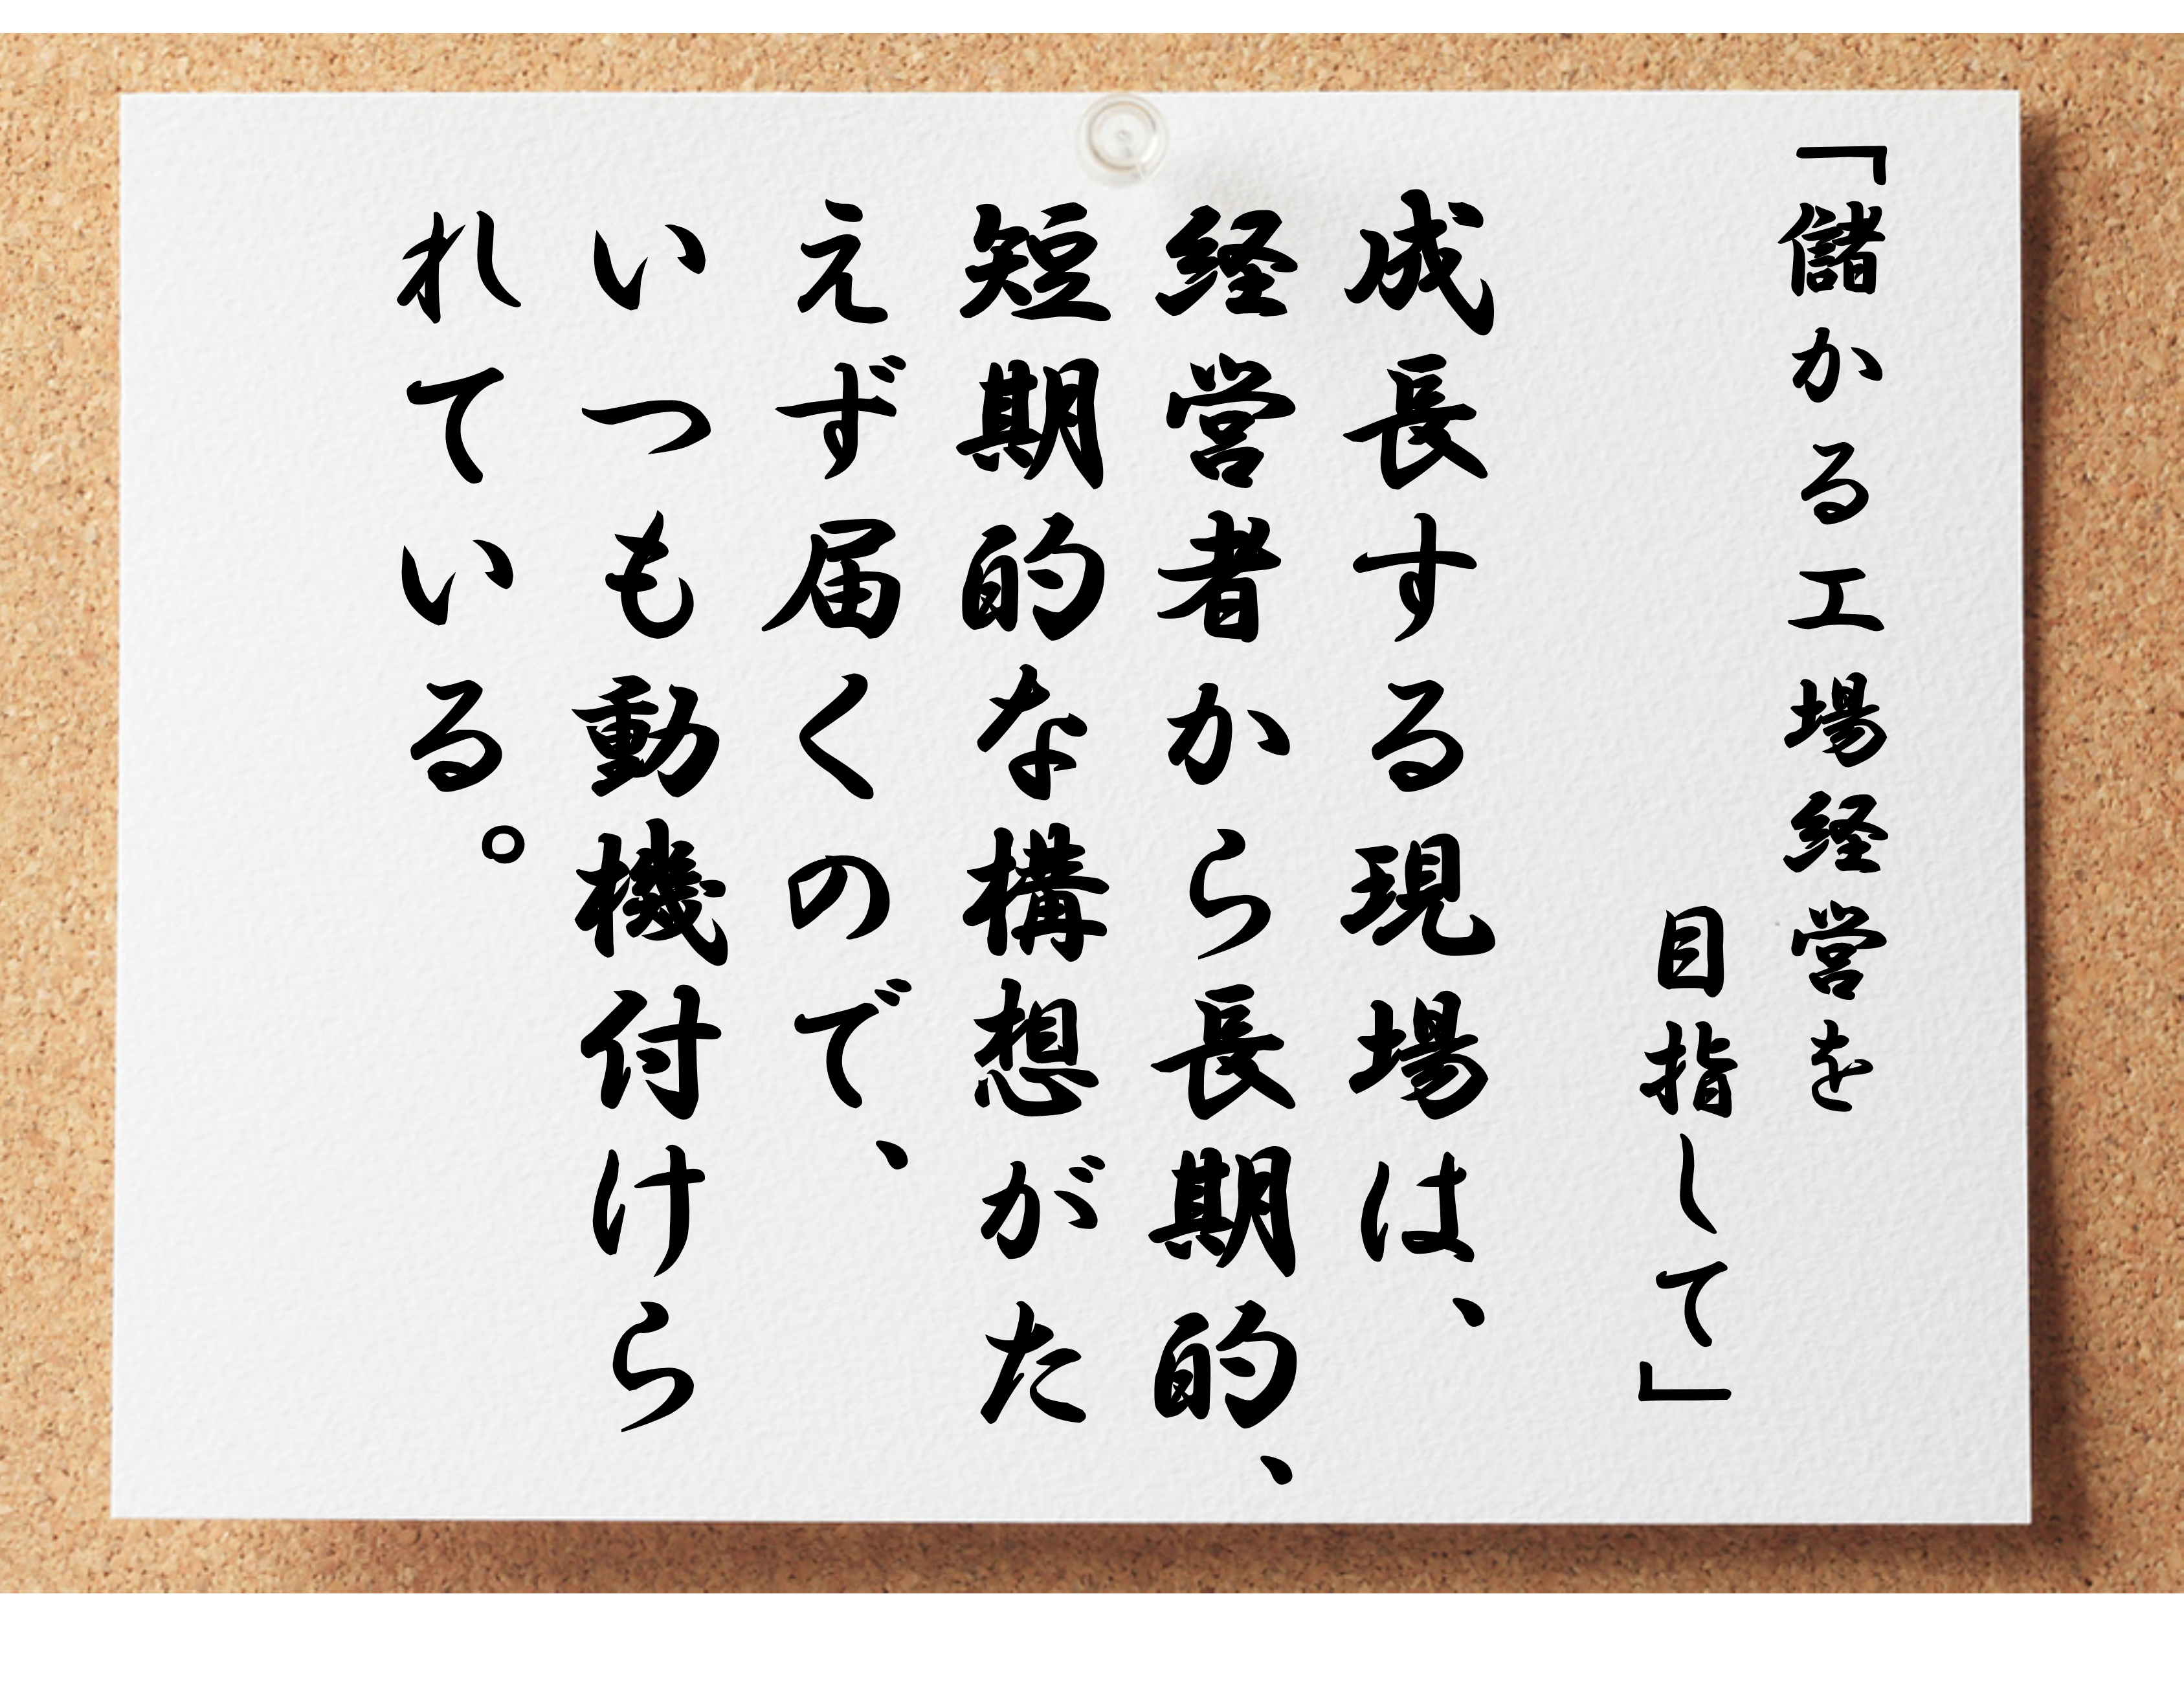 「儲かる工場経営を
目指して」
成長する現場は、
経営者から長期的、
短期的な構想がた
えず届くので、
いつも動機付けら
れている。